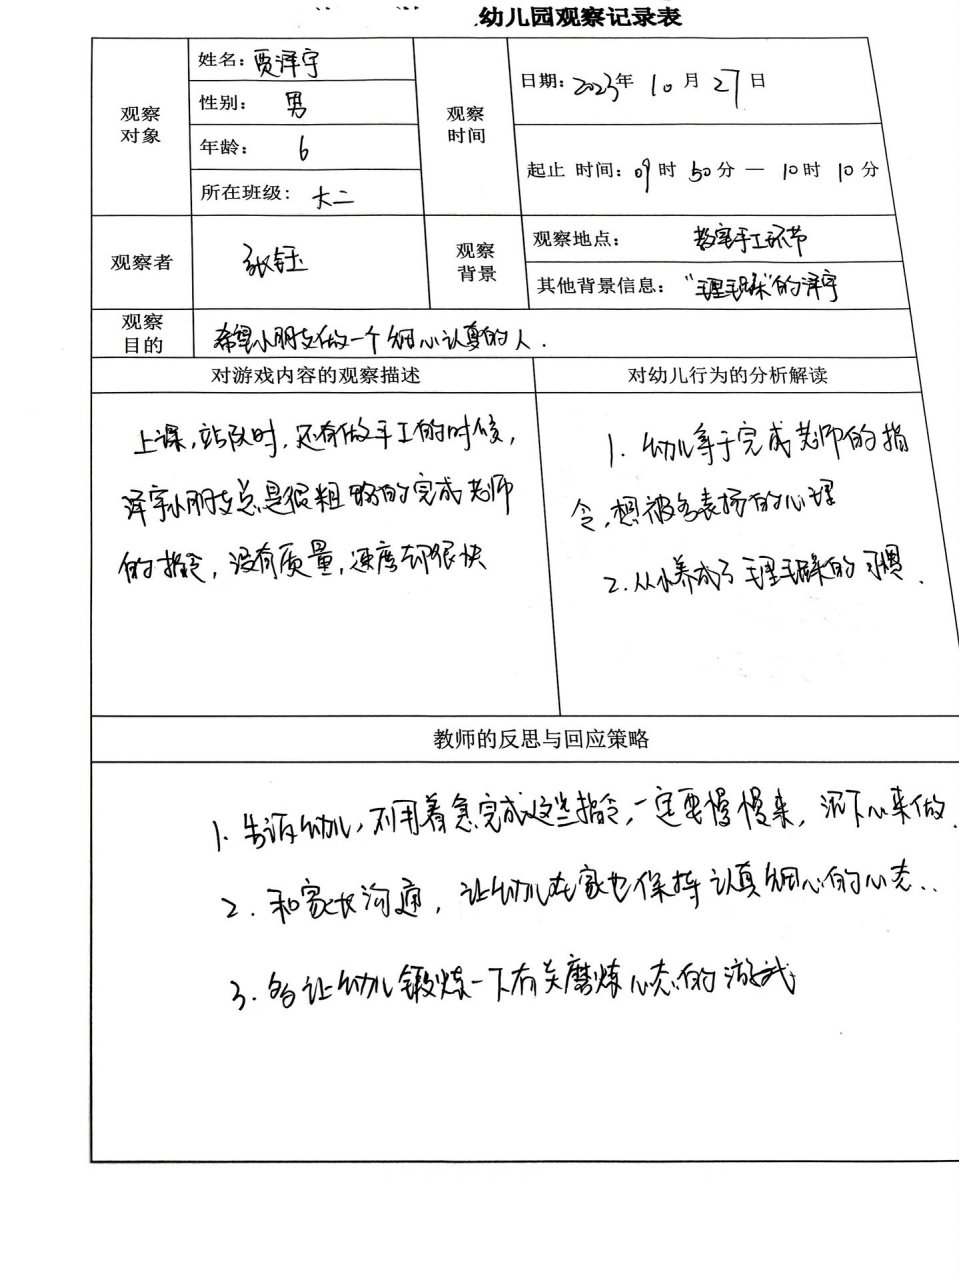 幼儿园观察记录表
观察对象
姓名：贾泽宇
性别：男
年龄：6
所在班级：大二
观察时间
日期：2023年10月27日
起止 时间：09时50分 — 10时10分
观察者
张钰
观察背景
观察地点：教室手工环节
其他背景信息：“毛毛躁躁”的泽宇
观察目的
希望小朋友做一个细心认真的人.
对游戏内容的观察描述
上课，站队时，还有做手工的时候，
泽宇小朋友总是很粗略的完成老师
的指令，没有质量，速度却很快
对幼儿行为的分析解读
1. 幼儿急于完成老师的指
令，想被多表扬的心理
2. 从小养成了毛毛躁躁的习惯.
教师的反思与回应策略
1. 告诉幼儿，不用着急完成这些指令，一定要慢慢来，沉下心来做.
2. 和家长沟通，让幼儿在家也保持认真细心的心态..
3. 多让幼儿锻炼一下有关磨炼心态的游戏